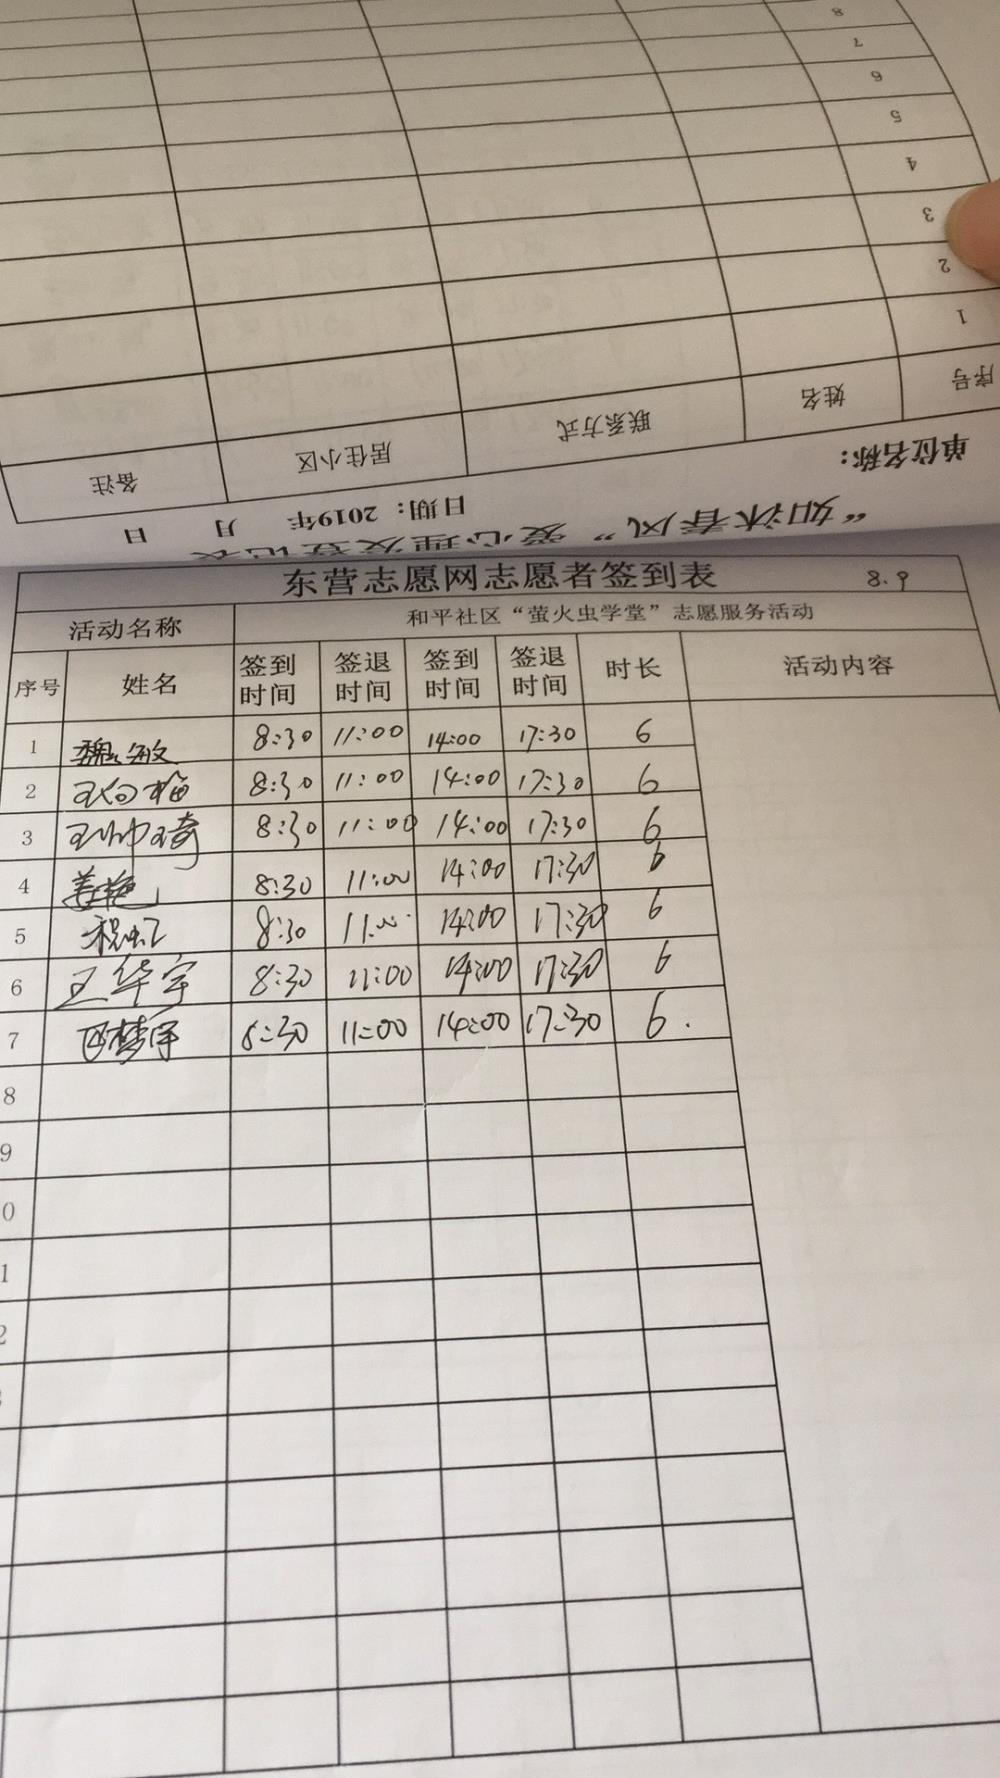 8
7
6
5
4
3
2
1
序号 姓名 联系方式 居住小区 备注
单位名称：
日期：2019年 月 日
“如沐春风”爱心理发登记表
东营志愿网志愿者签到表 8.9
活动名称 和平社区“萤火虫学堂”志愿服务活动
序号 姓名 签到时间 签退时间 签到时间 签退时间 时长 活动内容
1 魏敏 8:30 11:00 14:00 17:30 6
2 8:30 11:00 14:00 17:30 6
3 王帅琦 8:30 11:00 14:00 17:30 6
4 姜艳 8:30 11:00 14:00 17:30 6
5 8:30 11:00 14:00 17:30 6
6 王华宇 8:30 11:00 14:00 17:30 6
7 8:30 11:00 14:00 17:30 6.
8
9
0
1
2